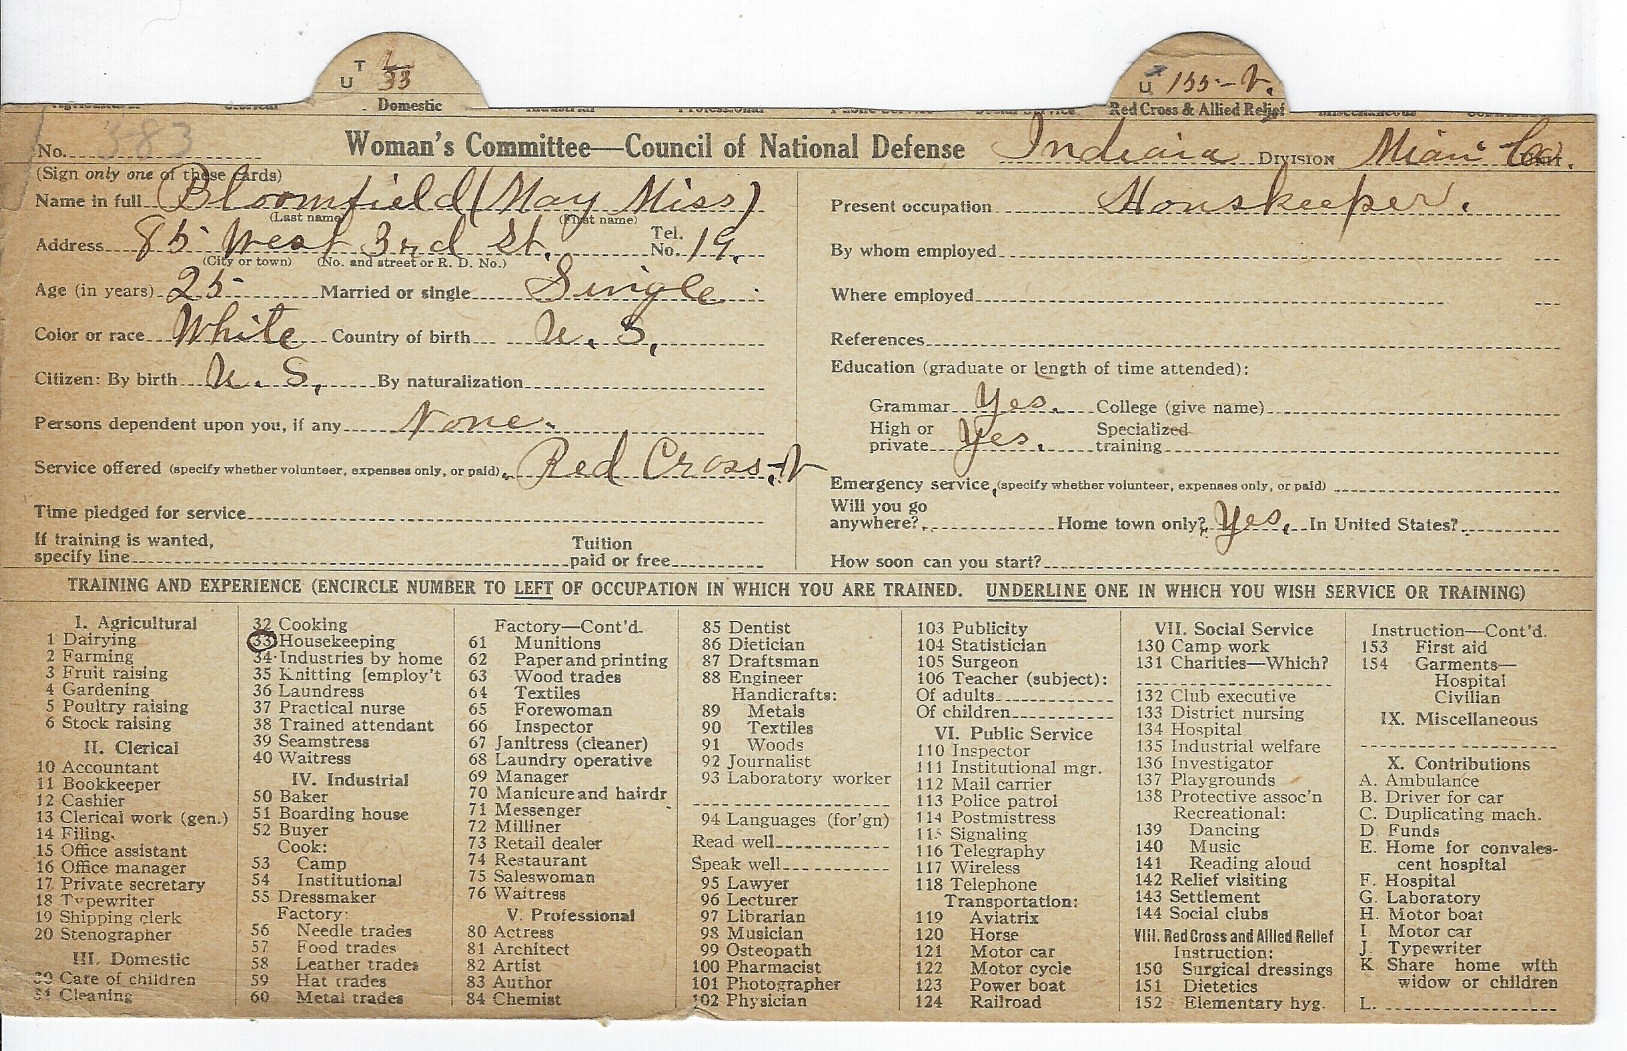 T
U 33
Domestic
U 155-V.
Red Cross & Allied Relief
No. 383
Woman's Committee—Council of National Defense Indiana DIVISION Miami Co. UNIT.
(Sign only one of these cards)
Name in full Bloomfield (May Miss)
(Last name) (First name)
Address 85 West 3rd St. Tel. No. 19.
(City or town) (No. and street or R. D. No.)
Age (in years) 25 Married or single Single
Color or race White Country of birth U. S.
Citizen: By birth U. S. By naturalization
Persons dependent upon you, if any None.
Service offered (specify whether volunteer, expenses only, or paid) Red Cross-V
Time pledged for service
If training is wanted,
specify line
Tuition
paid or free
Present occupation Houskeeper.
By whom employed
Where employed
References
Education (graduate or length of time attended):
Grammar Yes. College (give name)
High or private Yes. Specialized training
Emergency service (specify whether volunteer, expenses only, or paid)
Will you go anywhere? Home town only? Yes. In United States?
How soon can you start?
TRAINING AND EXPERIENCE (ENCIRCLE NUMBER TO LEFT OF OCCUPATION IN WHICH YOU ARE TRAINED. UNDERLINE ONE IN WHICH YOU WISH SERVICE OR TRAINING)
I. Agricultural
1 Dairying
2 Farming
3 Fruit raising
4 Gardening
5 Poultry raising
6 Stock raising
II. Clerical
10 Accountant
11 Bookkeeper
12 Cashier
13 Clerical work (gen.)
14 Filing
15 Office assistant
16 Office manager
17 Private secretary
18 Typewriter
19 Shipping clerk
20 Stenographer
III. Domestic
30 Care of children
31 Cleaning
32 Cooking
33 Housekeeping
34 Industries by home
35 Knitting [employ't
36 Laundress
37 Practical nurse
38 Trained attendant
39 Seamstress
40 Waitress
IV. Industrial
50 Baker
51 Boarding house
52 Buyer
Cook:
53 Camp
54 Institutional
55 Dressmaker
Factory:
56 Needle trades
57 Food trades
58 Leather trades
59 Hat trades
60 Metal trades
Factory—Cont'd.
61 Munitions
62 Paper and printing
63 Wood trades
64 Textiles
65 Forewoman
66 Inspector
67 Janitress (cleaner)
68 Laundry operative
69 Manager
70 Manicure and hairdr
71 Messenger
72 Milliner
73 Retail dealer
74 Restaurant
75 Saleswoman
76 Waitress
V. Professional
80 Actress
81 Architect
82 Artist
83 Author
84 Chemist
85 Dentist
86 Dietician
87 Draftsman
88 Engineer
Handicrafts:
89 Metals
90 Textiles
91 Woods
92 Journalist
93 Laboratory worker
94 Languages (for'gn)
Read well
Speak well
95 Lawyer
96 Lecturer
97 Librarian
98 Musician
99 Osteopath
100 Pharmacist
101 Photographer
102 Physician
103 Publicity
104 Statistician
105 Surgeon
106 Teacher (subject):
Of adults
Of children
VI. Public Service
110 Inspector
111 Institutional mgr.
112 Mail carrier
113 Police patrol
114 Postmistress
115 Signaling
116 Telegraphy
117 Wireless
118 Telephone
Transportation:
119 Aviatrix
120 Horse
121 Motor car
122 Motor cycle
123 Power boat
124 Railroad
VII. Social Service
130 Camp work
131 Charities—Which?
132 Club executive
133 District nursing
134 Hospital
135 Industrial welfare
136 Investigator
137 Playgrounds
138 Protective assoc'n
Recreational:
139 Dancing
140 Music
141 Reading aloud
142 Relief visiting
143 Settlement
144 Social clubs
VIII. Red Cross and Allied Relief
Instruction:
150 Surgical dressings
151 Dietetics
152 Elementary hyg.
Instruction—Cont'd.
153 First aid
154 Garments—
Hospital
Civilian
IX. Miscellaneous
X. Contributions
A. Ambulance
B. Driver for car
C. Duplicating mach.
D. Funds
E. Home for convales-
cent hospital
F. Hospital
G. Laboratory
H. Motor boat
I. Motor car
J. Typewriter
K Share home with
widow or children
L.